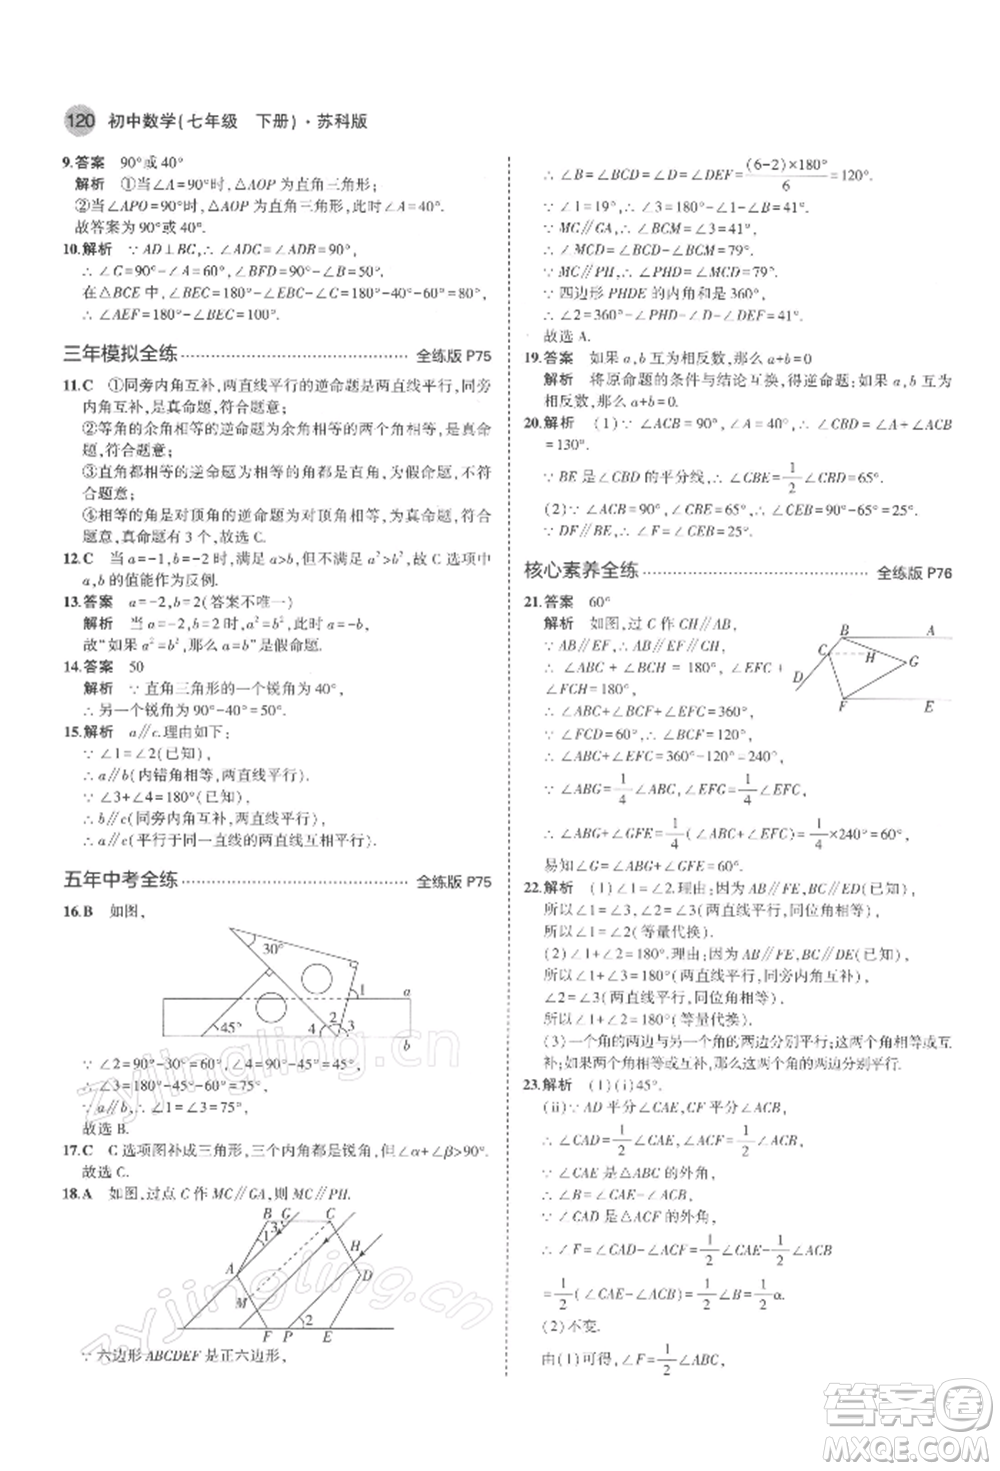 120 初中数学(七年级 下册)·苏科版
9.答案 90°或40°
解析 ①当∠A=90°时,△AOP为直角三角形;
②当∠APO=90°时,△AOP为直角三角形,此时∠A=40°.
故答案为90°或40°.
10.解析 ∵AD⊥BC,∴∠ADC=∠ADB=90°,
∴∠C=90°-∠A=60°,∠BFD=90°-∠B=60°.
在△BCE中,∠BEC=180°-∠EBC-∠C=180°-60°=80°,
∴∠AEF=180°-∠BEC=100°.
三年模拟全练 全练版 P75
11.C ①同旁内角互补,两直线平行的逆命题是两直线平行,同旁
内角互补,是真命题,符合题意;
②等角的余角相等的逆命题是余角相等的两个角相等,是真命
题,符合题意;
③直角都相等的逆命题为相等的角都是直角,为假命题,不符
合题意;
④相等的角是对顶角的逆命题为对顶角相等,是真命题,符合
题意,真命题有3个.故选C.
12.C 当a=-1,b=-2时,满足a>b,但不满足a²>b²,故C选项中
a,b的值能作为反例.
13.答案 a=-2,b=2(答案不唯一)
解析 当a=-2,b=2时,a²=b²,此时a≠b,
故“如果a²=b²,那么a=b”是假命题.
14.答案 50
解析 ∵直角三角形的一个锐角为40°,
∴另一个锐角为90°-40°=50°.
15.解析 a∥c.理由如下:
∵∠1=∠2(已知),
∴a∥b(内错角相等,两直线平行).
∵∠3+∠4=180°(已知),
∴b∥c(同旁内角互补,两直线平行),
∴a∥c(平行于同一直线的两直线互相平行).
五年中考全练 全练版 P75
16.B 如图,
30°
1
a
45°
4
2
3
b
∵∠2=90°-30°=60°,
∴∠3=180°-45°-60°=75°,
∵a∥b,∴∠1=∠3=75°,
故选B.
17.C C选项图补成三角形,三个内角都是锐角,∠α+∠β>90°.
故选C.
18.A 如图,过点C作MC∥GA,则MC∥PH.
B G C
1 3
H
A D
M
2
F P E
∵六边形ABCDEF是正六边形,
∴∠B=∠BCD=∠D=∠DEF=(6-2)×180°/6=120°.
∵∠1=19°,∴∠3=180°-∠1-∠B=41°.
∵MC∥GA,∴∠BCM=∠3=41°,
∴∠MCD=∠BCD-∠BCM=79°.
∵MC∥PH,∴∠PHD=∠MCD=79°.
∵四边形PHDE的内角和是360°,
∴∠2=360°-∠PHD-∠D-∠DEF=41°,
故选A.
19.答案 如果a,b互为相反数,那么a+b=0
解析 将原命题的条件与结论互换,得逆命题:如果a,b互为
相反数,那么a+b=0.
20.解析 (1)∵∠ACB=90°,∠A=40°,∴∠CBD=∠A+∠ACB
=130°.
∵BE是∠CBD的平分线,∴∠CBE=1/2∠CBD=65°.
(2)∵∠ACB=90°,∠CBE=65°,∴∠CEB=25°.
∵DF∥BE,∴∠F=∠CEB=25°.
核心素养全练 全练版 P76
21.答案 60°
解析 如图,过C作CH∥AB,
∵AB∥EF,∴AB∥EF∥CH,
∴∠ABC+∠BCH=180°,∠EFC+
∠FCH=180°,
∴∠ABC+∠BCF+∠EFC=360°,
∵∠FCD=60°,∴∠BCF=120°,
∴∠ABC+∠EFC=360°-120°=240°,
∵∠ABG=1/4∠ABC,∠EFG=1/4∠EFC,
∴∠ABG+∠EFG=1/4(∠ABC+∠EFC)=1/4×240°=60°,
易知∠G=∠ABG+∠EFG=60°.
B A
C H G
D
F E
22.解析 (1)∠1=∠2.理由:因为AB∥FE,BC∥ED(已知),
所以∠1=∠3,∠2=∠3(两直线平行,同位角相等),
所以∠1=∠2(等量代换).
(2)∠1+∠2=180°.理由:因为AB∥FE,BC∥DE(已知),
所以∠1+∠3=180°(两直线平行,同旁内角互补),
∠2=∠3(两直线平行,同位角相等),
所以∠1+∠2=180°(等量代换).
(3)一个角的两边与另一个角的两边分别平行,那么这两个角相等或
互补;如果两个角相等或互补,那么这两个角的两边分别平行.
23.解析 (1)(i)45°.
(ii)∵AD平分∠CAE,CF平分∠ACB,
∴∠CAD=1/2∠CAE,∠ACF=1/2∠ACB,
∵∠CAE是△ABC的外角,
∴∠B=∠CAE-∠ACB,
∵∠CAD是△ACF的外角,
∴∠F=∠CAD-∠ACF=1/2∠CAE-1/2∠ACB
=1/2(∠CAE-∠ACB)=1/2∠B=1/2α.
(2)不变.
由(1)可得∠F=1/2∠ABC,
zyjingling.cn
zyjingling.cn
答案卷
MXQE.COM